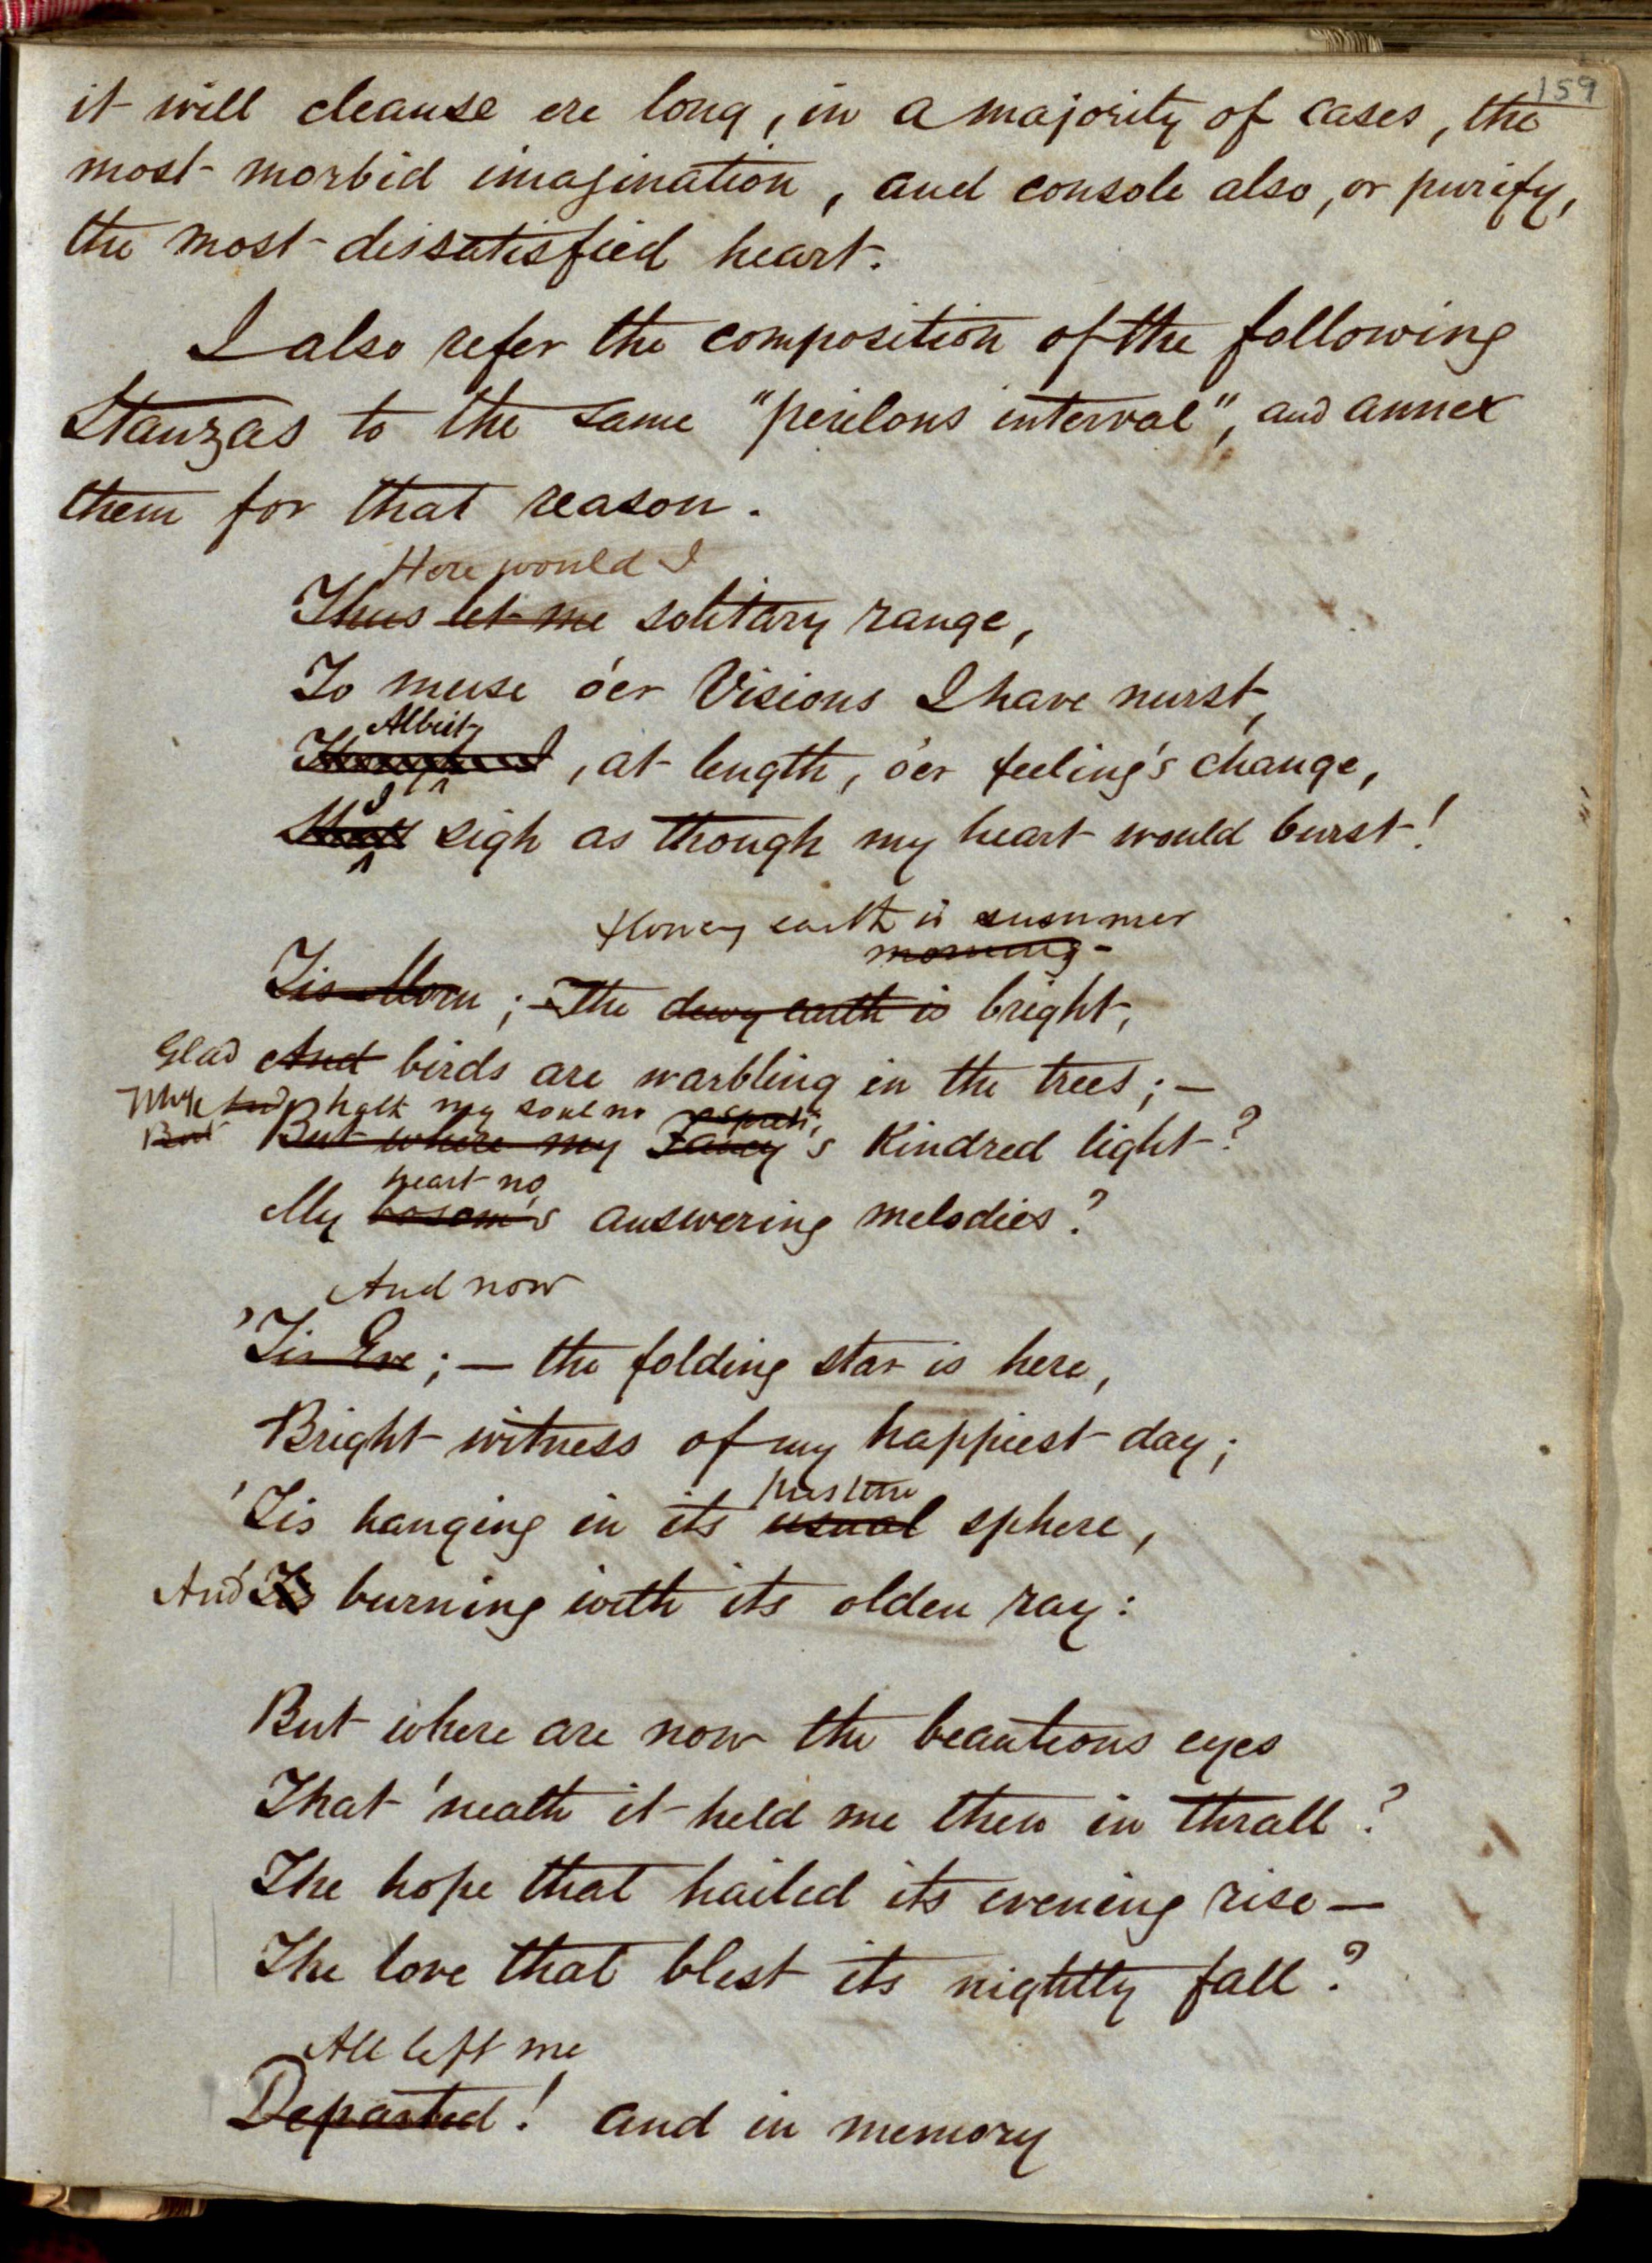 159
it will cleanse ere long, in a majority of cases, the
most morbid imagination, and console also, or purify,
the most dissatisfied heart.
I also refer the composition of the following
Stanzas to the same "perilous interval", and annex
them for that reason.
Here would I
Thus let me solitary range,
To muse o'er Visions I have nurst,
Albeit,
Though , at length, o'er feeling's change,
I
sigh as though my heart would burst!
flowery earth is summer
morning -
Tis Morn ; - The dewy earth is bright,
Glad And birds are warbling in the trees; —
Why hath my soul no
But But where my Fancy's kindred light?
heart no
My bosom's answering melodies?
And now
'Tis Eve ; — the folding star is here,
Bright witness of my happiest day;
pristine
'Tis hanging in its usual sphere,
And 'Tis burning with its olden ray:
But where are now the beauteous eyes
That 'neath it held me then in thrall?
The hope that hailed its evening rise —
The love that blest its nightly fall?
All left me
Departed! and in memory